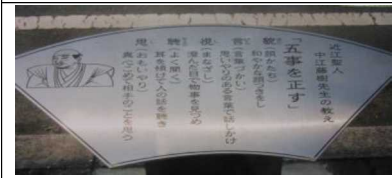 近江聖人
中江藤樹先生の教え
「五事を正す」
貌（顔かたち）
和やかな顔つきをし
言（言葉づかい）
思いやりのある言葉で話しかけ
視（まなざし）
澄んだ目で物事を見つめ
聴（よく聞く）
耳を傾けて人の話を聴き
思（おもいやり）
真ごころをこめて相手のことを思う